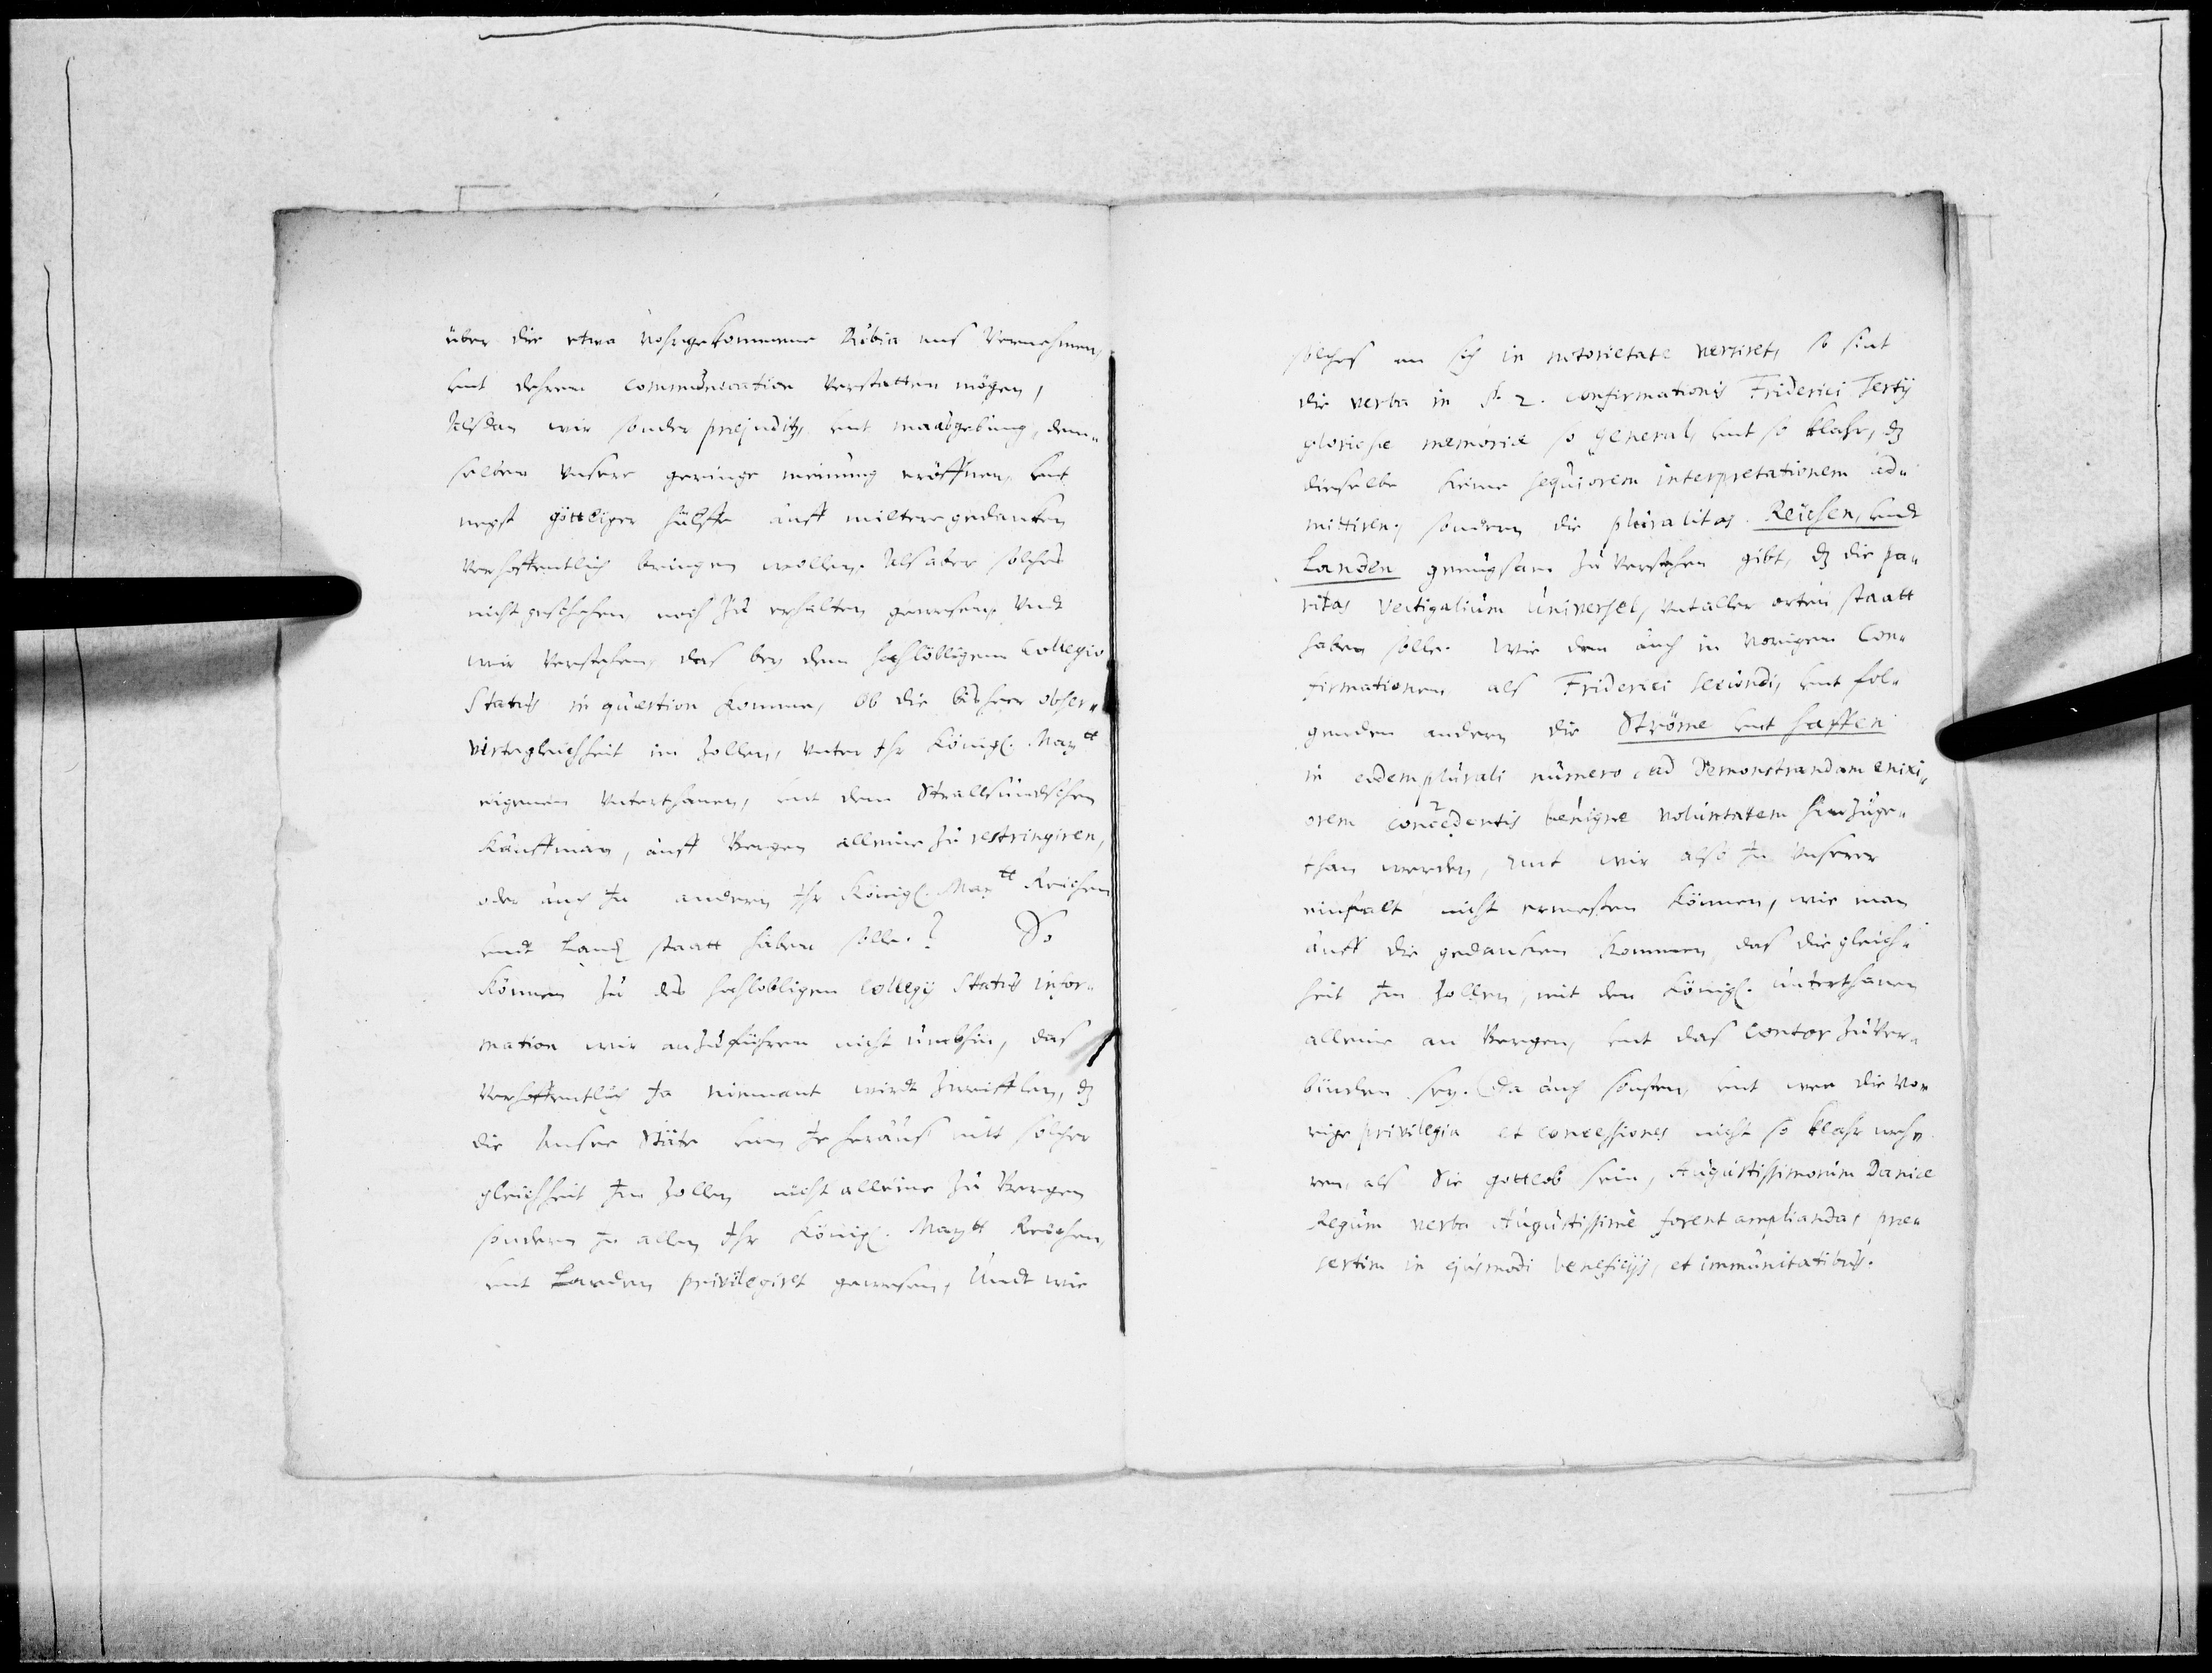 über die etwa vohrgekommene dubia uns Vernehmen,
unt dehren communication verstatten mögen,
Alsdan wir sonder præjuditz, unt maasgebung, dem„
selben unsere geringe meinung eröffnen, unt
negst göttliger hülffe auff miltere gedanken
Verhoffentlich bringen wollen. Als aber solches
nicht geschehen, noch zu erhalten gewesen, Undt
wir verstehen, das bey dem hochlöbligem Collegio
Status in quæstion komme, Ob die bisher obser„
virte gleichheit im Zollen, unter Ihr Königl. Maytt
eigenen unterthanen, unt dem Strallsundischen
kauffman, auff Bergen alleine zu restringiren,
oder auch in andern Ihr Königl. Maytt Reichen
undt Land staatt haben solle.? So
können zu des hochlobligen Collegij Status infor„
mation wir anzuführen nicht umbhin, das
Verhoffentlich Ja niemant wirdt zweifflen, dz
die Ansee Städte von Je heraus mit solcher
gleichheit im Zollen nicht alleine zu Bergen
sondern in allen Ihr Königl. Maytt Reichen,
unt Landen privilegiret gewesen, Undt wie
solches an sich in notorietate versiret, so sint
die verba in §. 2. confirmationis Friderici Tertij
gloriosæ memoriæ so general, unt so klahr, dz
dieselbe keine sequiorem interpretationem ad„
mittiren, sondern die pluralitas Reichen, undt
Landen genugsam zu verstehen gibt, dz die pa„
ritas Vectigalium universel, unt aller orten staatt
haben solle. Wie den auch in vorigen Con„
firmationen als Friderici secundi, unt fol„
genden andern die Ströme unt haffen
in eodem plurali numero, ad demonstrandam enixi„
orem concedentis benignæ voluntatem hinzuge„
than werden, unt wir also in unserer
einfalt nicht ermessen können, wie man
auff die gedanken kommen, das die gleich„
heit im Zollen, mit den Königl. unterthanen
alleine an Bergen, unt das Contor zu ver„
binden sey. Da auch sonsten, unt wen die vo„
rige privilegia et concessiones nicht so klahr weh„
ren, als Sie gottlob sein, Augustissimorum Daniæ
Regum verba Augustissimè forent ampliandas præ„
sertim in ejusmodi beneficijs, et immunitatibus.